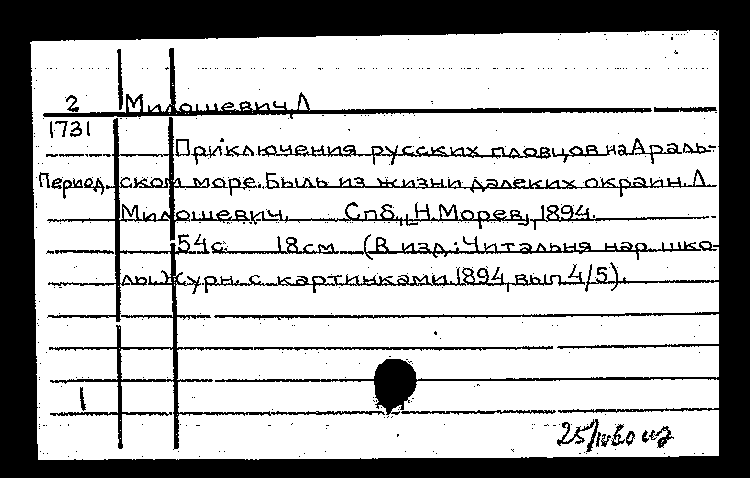 2 Милошевич, Л
1731
Приключения русских пловцов на Араль-
Период. ском море. Быль из жизни далеких окраин. Л.
Милошевич. Спб., "Н. Морев", 1894.
54с. 18см (В изд.: Читальня нар. шко-
лы. Журн. с картинками. 1894, вып. 4/5).
1
25/IV60